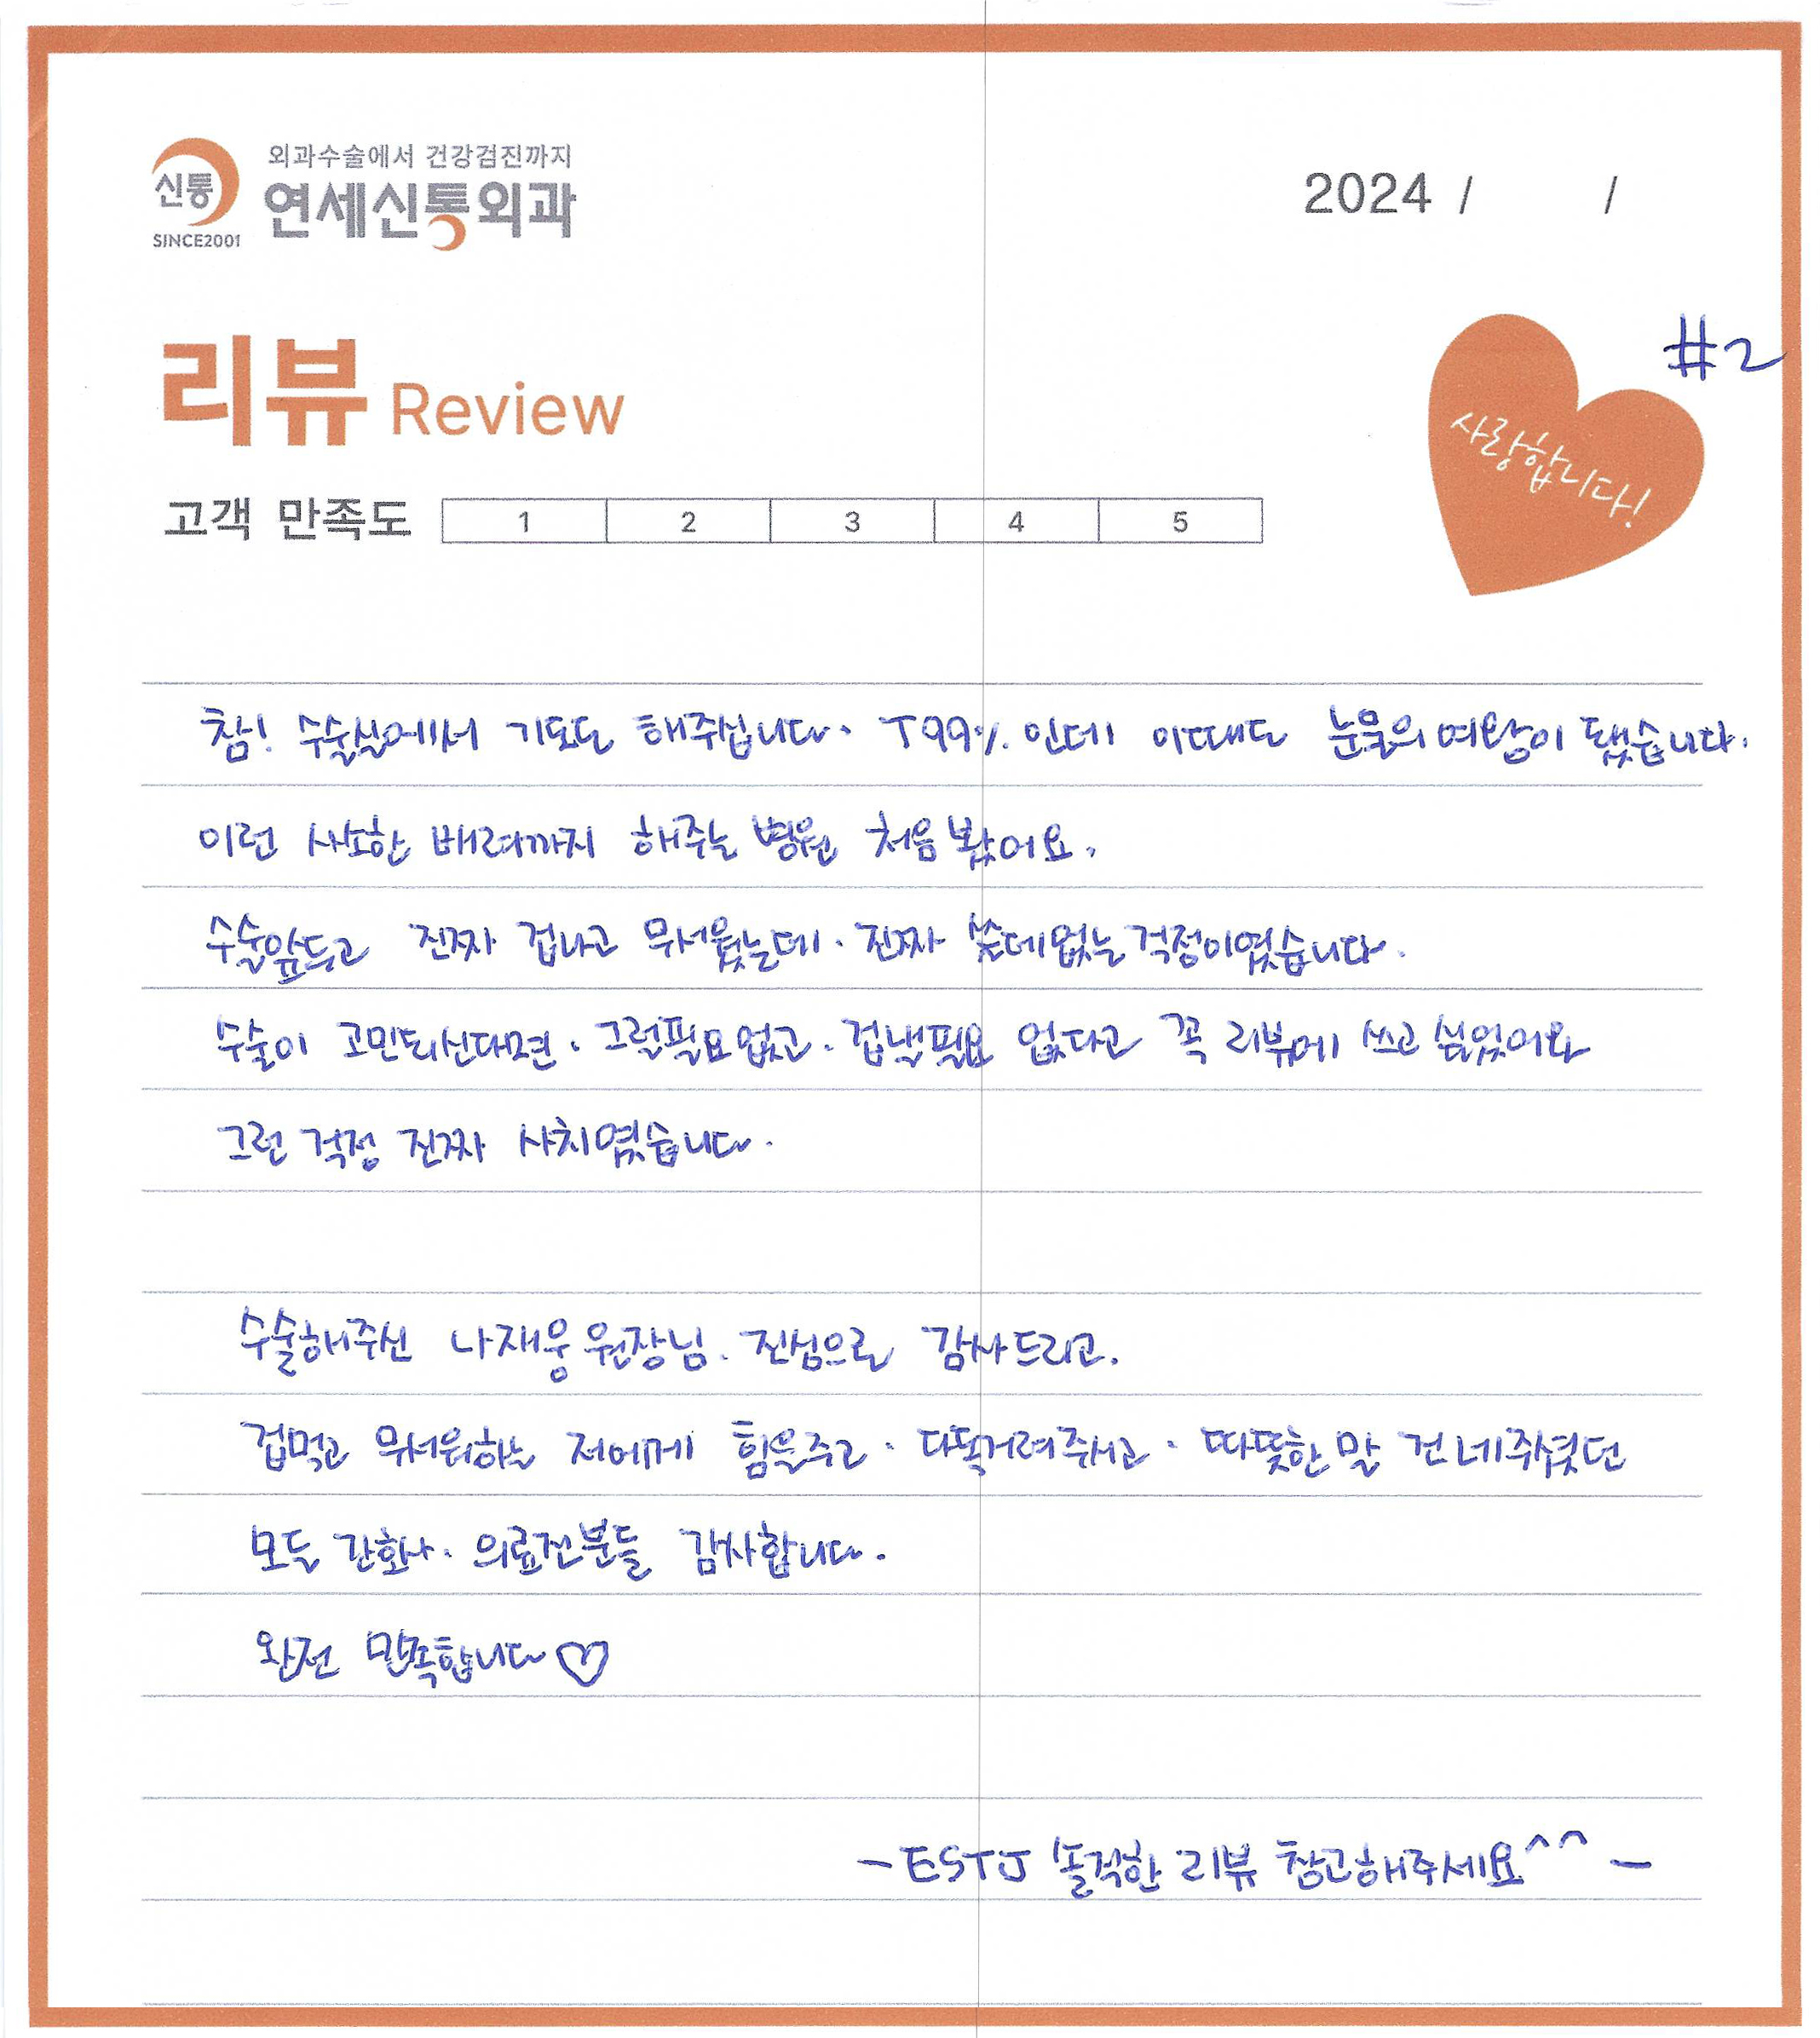 신통
SINCE2001
외과수술에서 건강검진까지
연세신통외과
2024 / /
#2
리뷰 Review
사랑합니다!
고객 만족도 1 2 3 4 5
참! 수술실에서 기도도 해주십니다. T99% 인데 이때도 눈물의여왕이 됐습니다.
이런 사소한 배려까지 해주는 병원 처음봤어요.
수술앞두고 진짜 겁나고 무서웠는데. 진짜 쓸데없는 걱정이였습니다.
수술이 고민되신다면. 그럴필요없고. 겁낼필요 없다고 꼭 리뷰에 쓰고 싶었어요
그런 걱정 진짜 사치였습니다.
수술해주신 나재웅 원장님. 진심으로 감사드리고.
겁먹고 무서워하는 저에게 힘을주고. 다독거려주시고. 따뜻한 말 건네주셨던
모든 간호사. 의료진분들 감사합니다.
완전 만족합니다♡
- ESTJ 솔직한 리뷰 참고해주세요^^ -